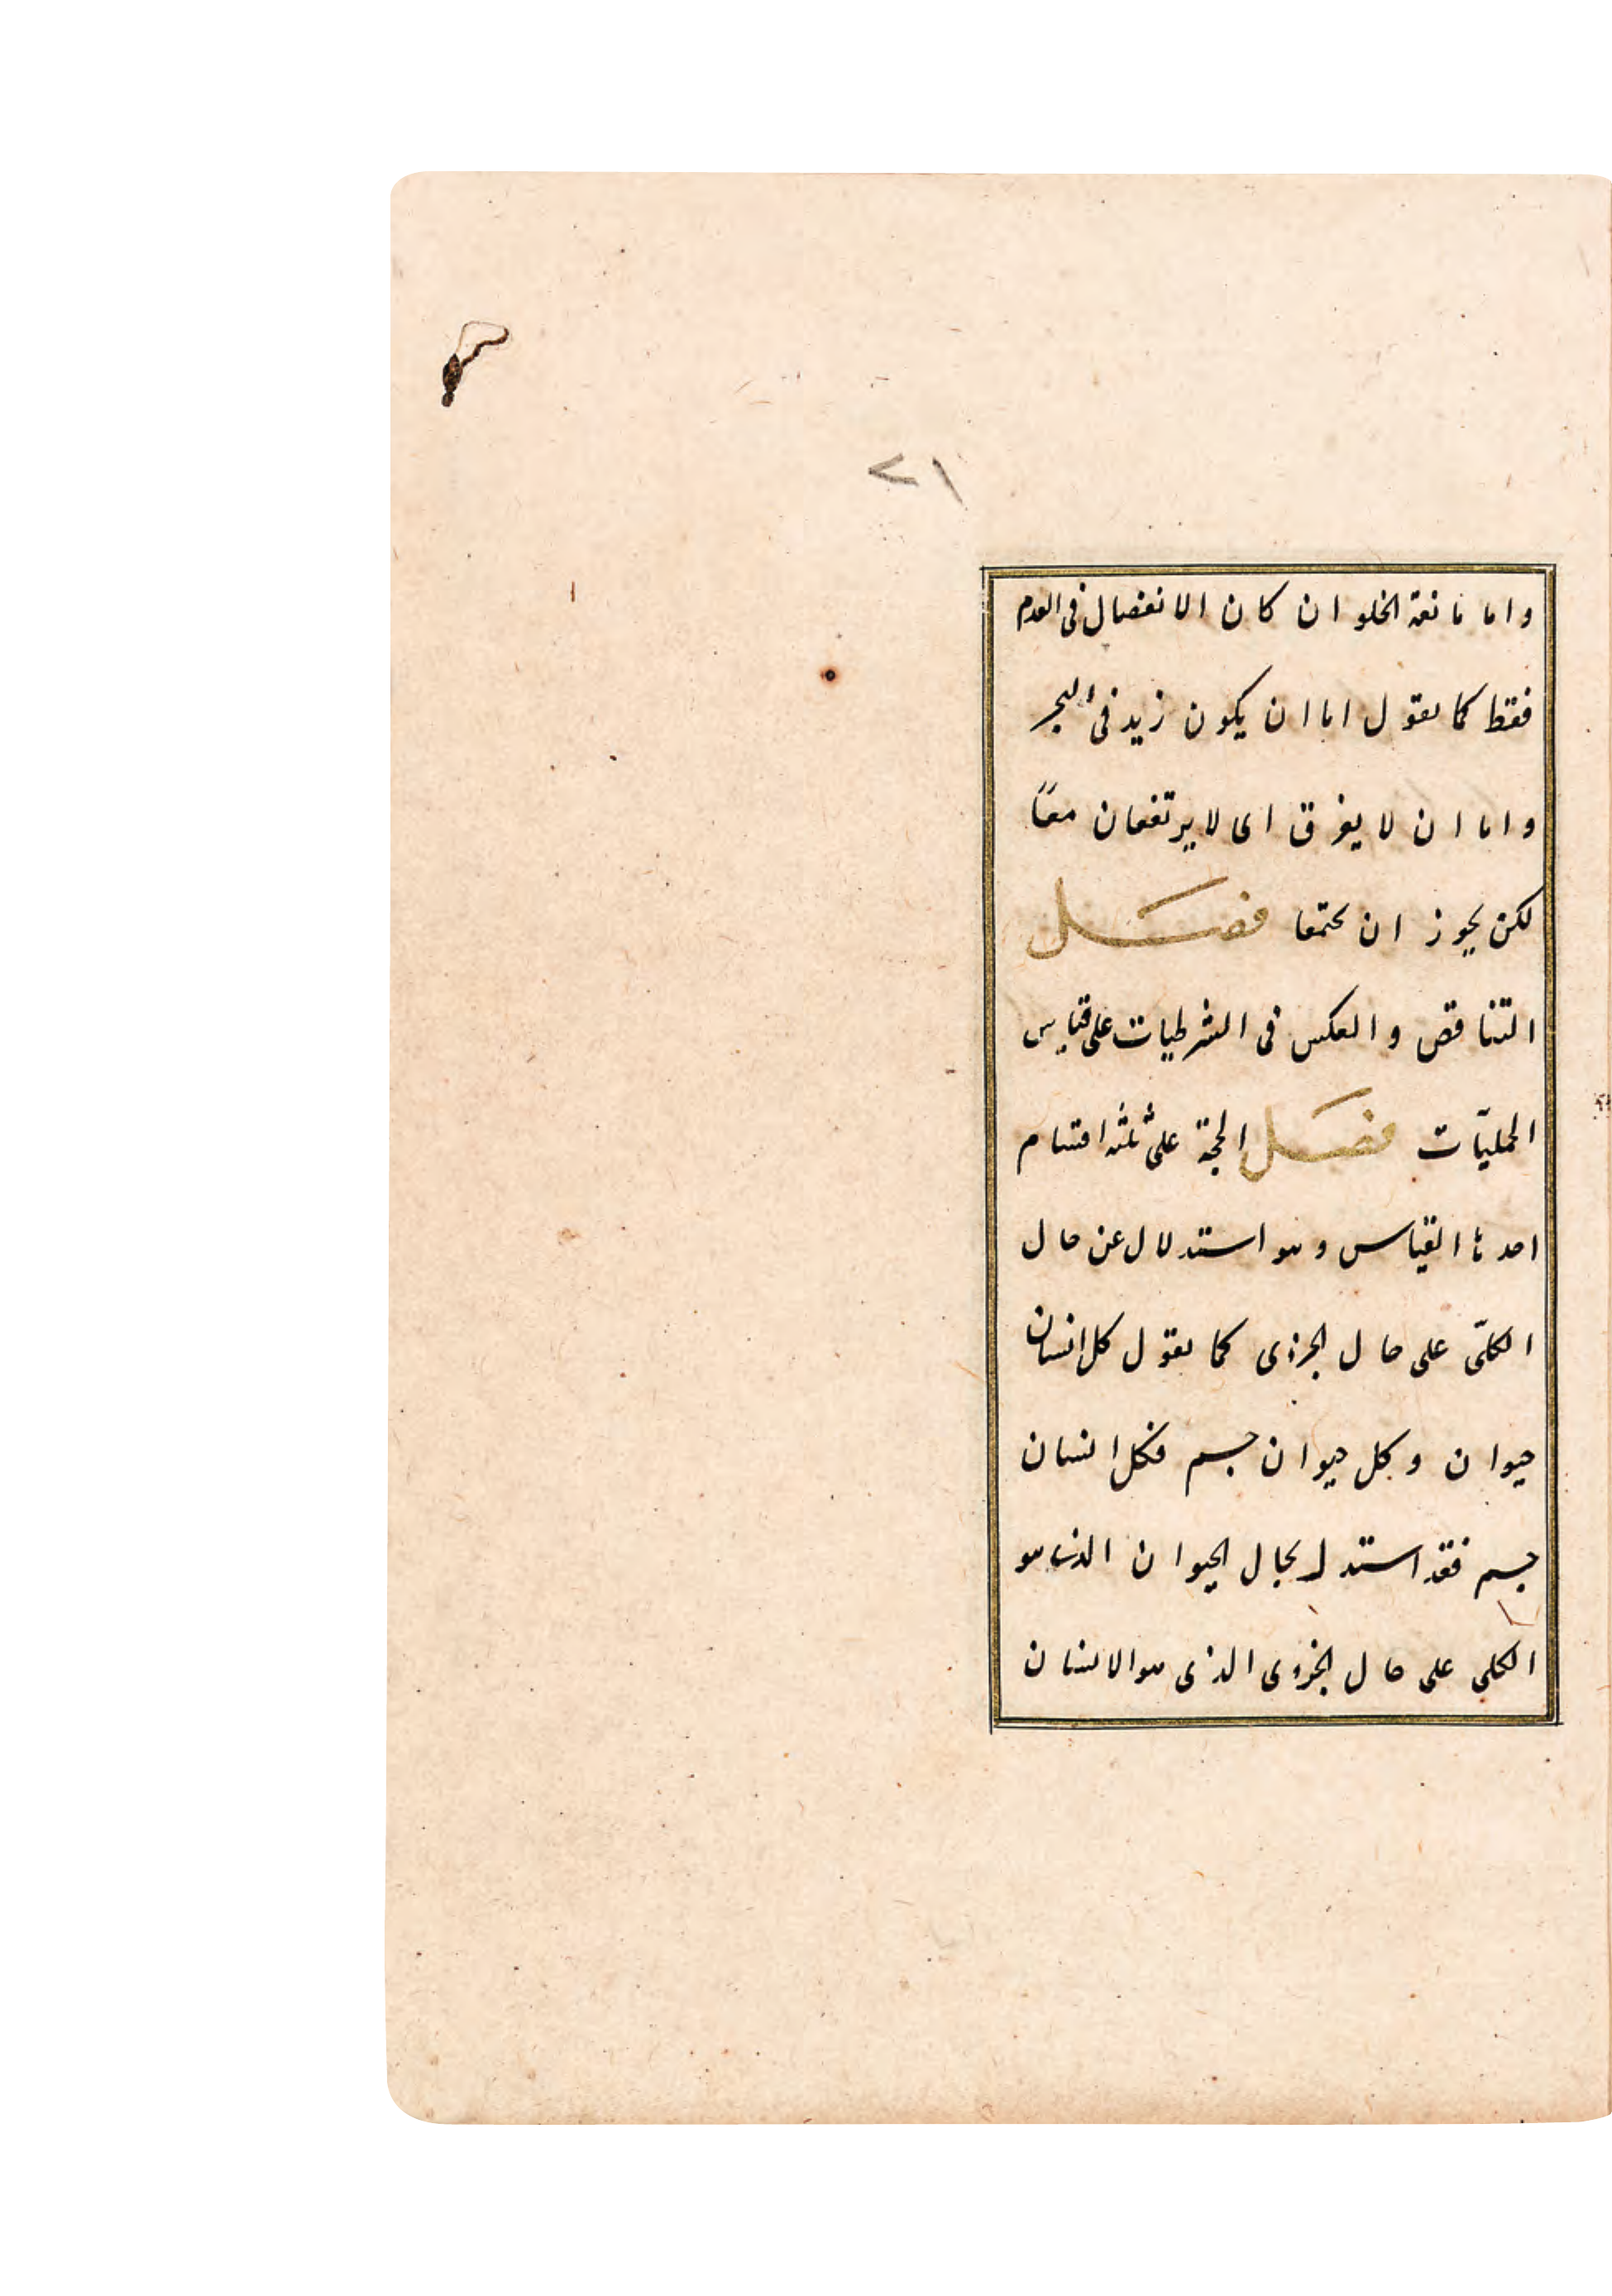 ٢١
واما مانعة الخلو ان كان الانفصال فى العدم
فقط كما يقول اما ان يكون زيد فى البحر
واما ان لا يغرق اى لا يرتفعان معًا
لكن يجوز ان يجتمعا فصَل
التناقض والعكس فى الشرطيات على قياس
الحمليّات فصَل الحجة على ثلثه اقسام
احدها القياس وهو استدلال عن حال
الكلّى على حال الجزئى كما يقول كل انسان
حيوان وكل حيوان جسم فكل انسان
جسم فقد استدل بحال الحيوان الذى هو
الكلى على حال الجزوى الذى هو الانسان